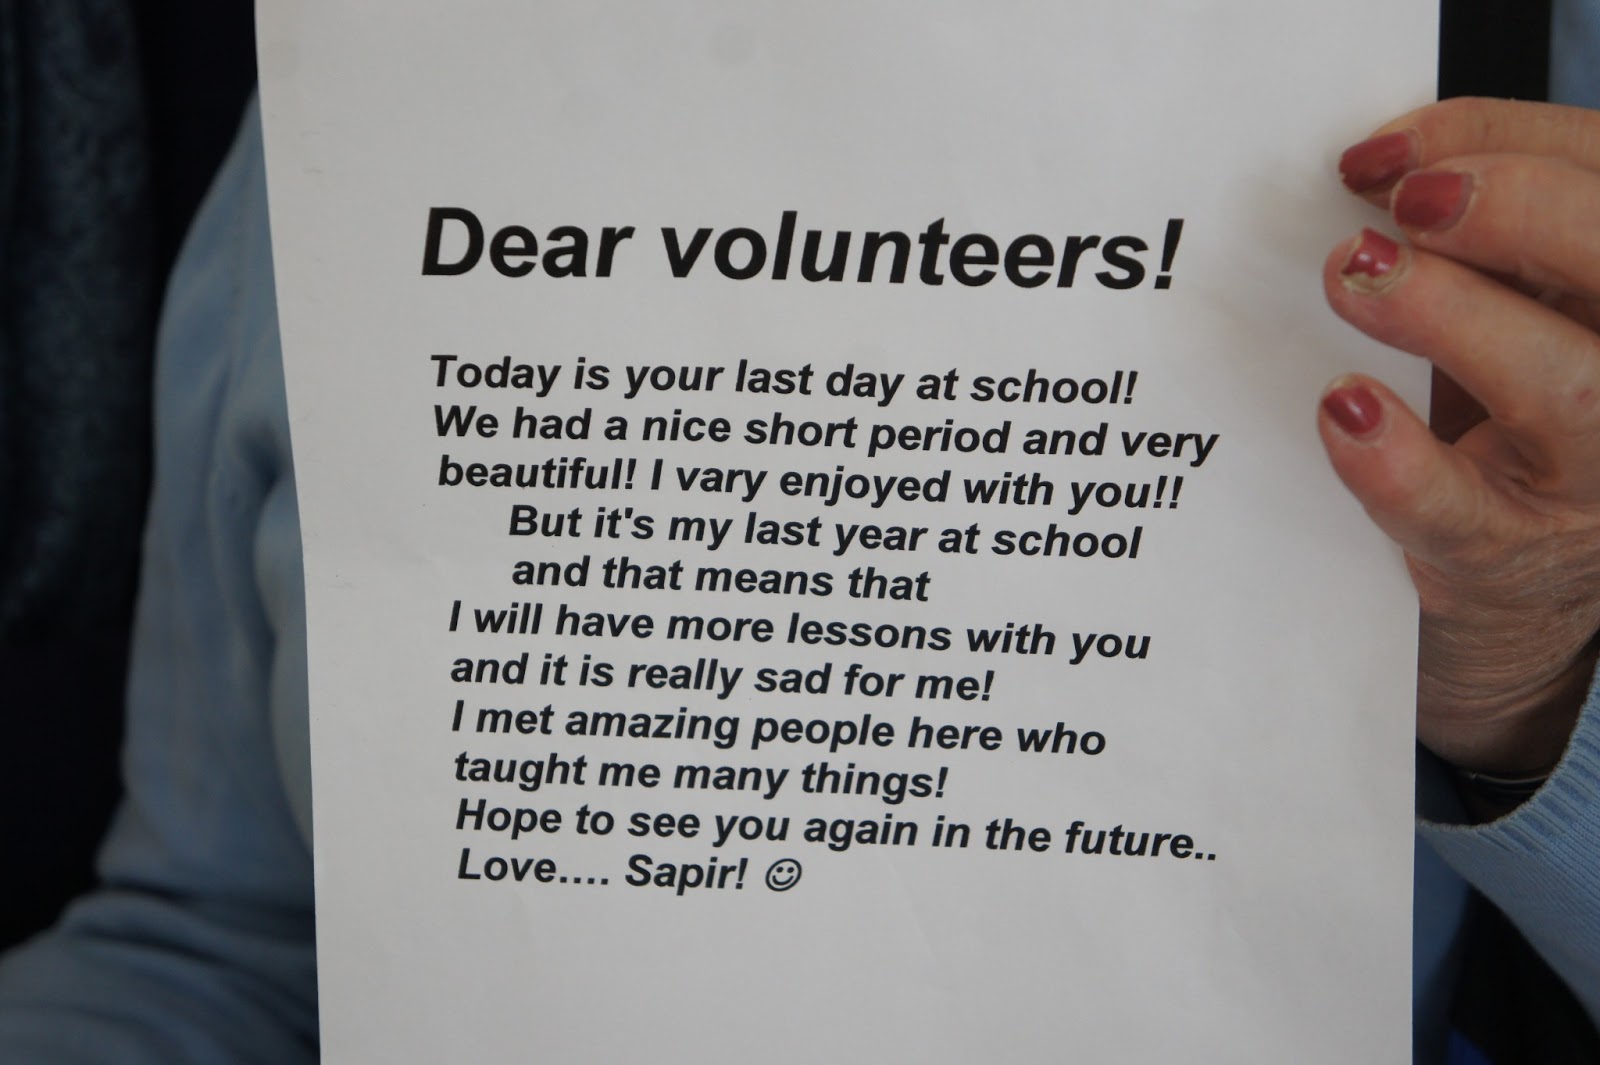 Dear volunteers!
Today is your last day at school!
We had a nice short period and very
beautiful! I vary enjoyed with you!!
But it's my last year at school
and that means that
I will have more lessons with you
and it is really sad for me!
I met amazing people here who
taught me many things!
Hope to see you again in the future..
Love.... Sapir! ☺